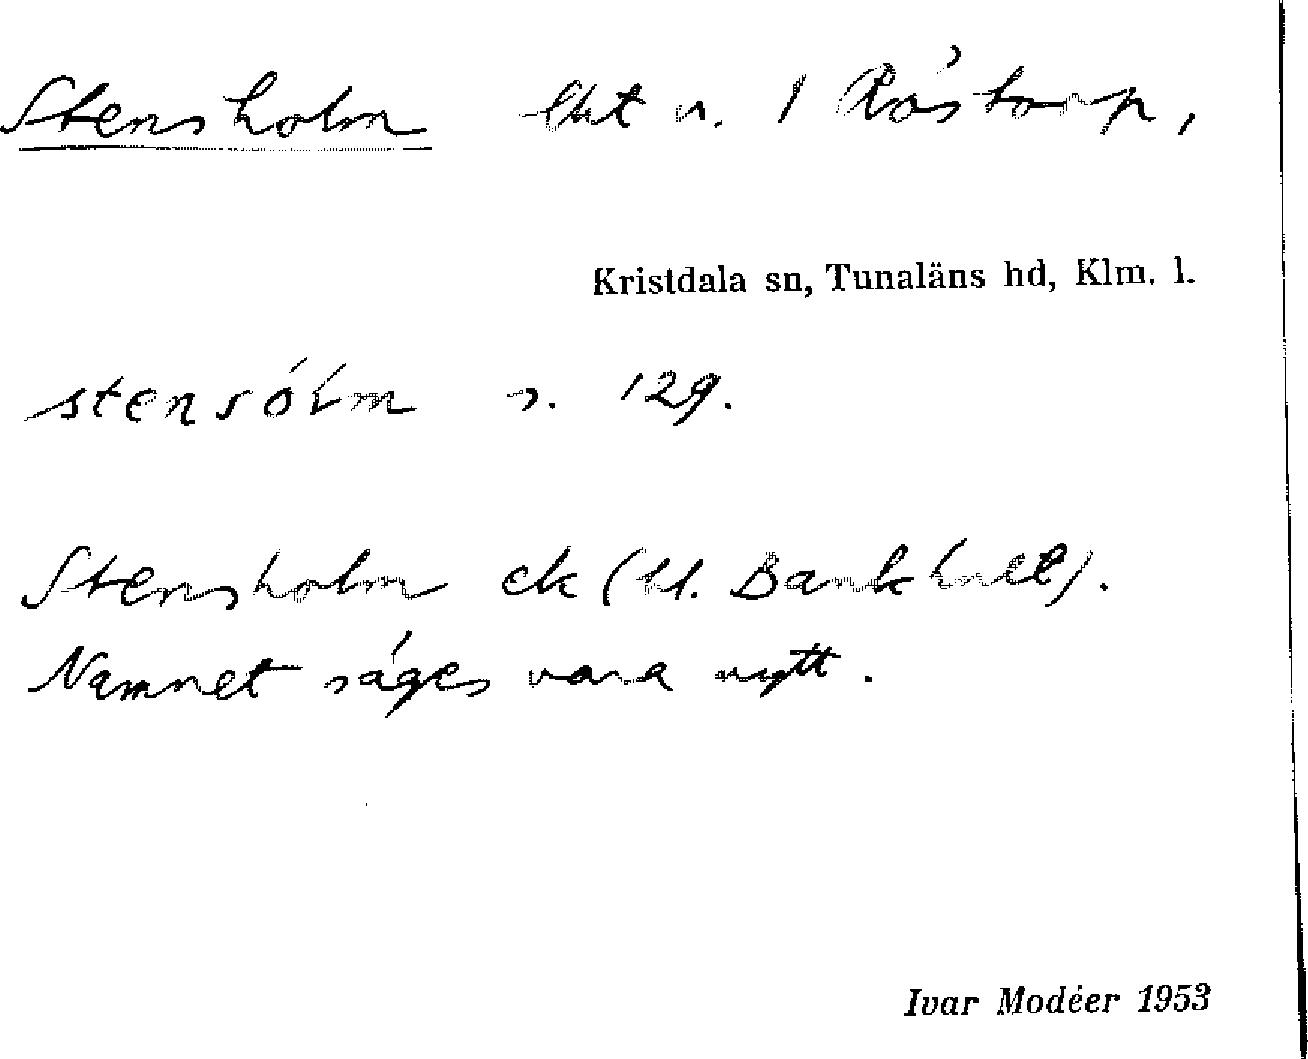 Stensholm lht u. 1 Råstorp,
Kristdala sn, Tunaläns hd, Klm. l.
stensólm s. 129.
Stensholm ek (bl. Bankhult).
Namnet säges vara nytt.
Ivar Modéer 1953